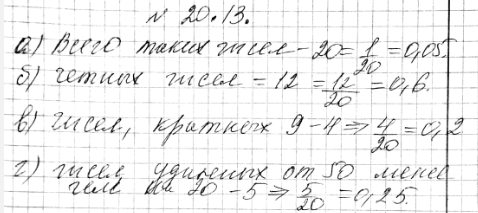 № 20.13.
а) Всего таких чисел – 20 = 1/20 = 0,05.
б) четных чисел = 12 = 12/20 = 0,6.
в) чисел, кратных 9 – 4 ⇒ 4/20 = 0,2
г) чисел удаленых от 50 менее
чем на 20 – 5 ⇒ 5/20 = 0,25.